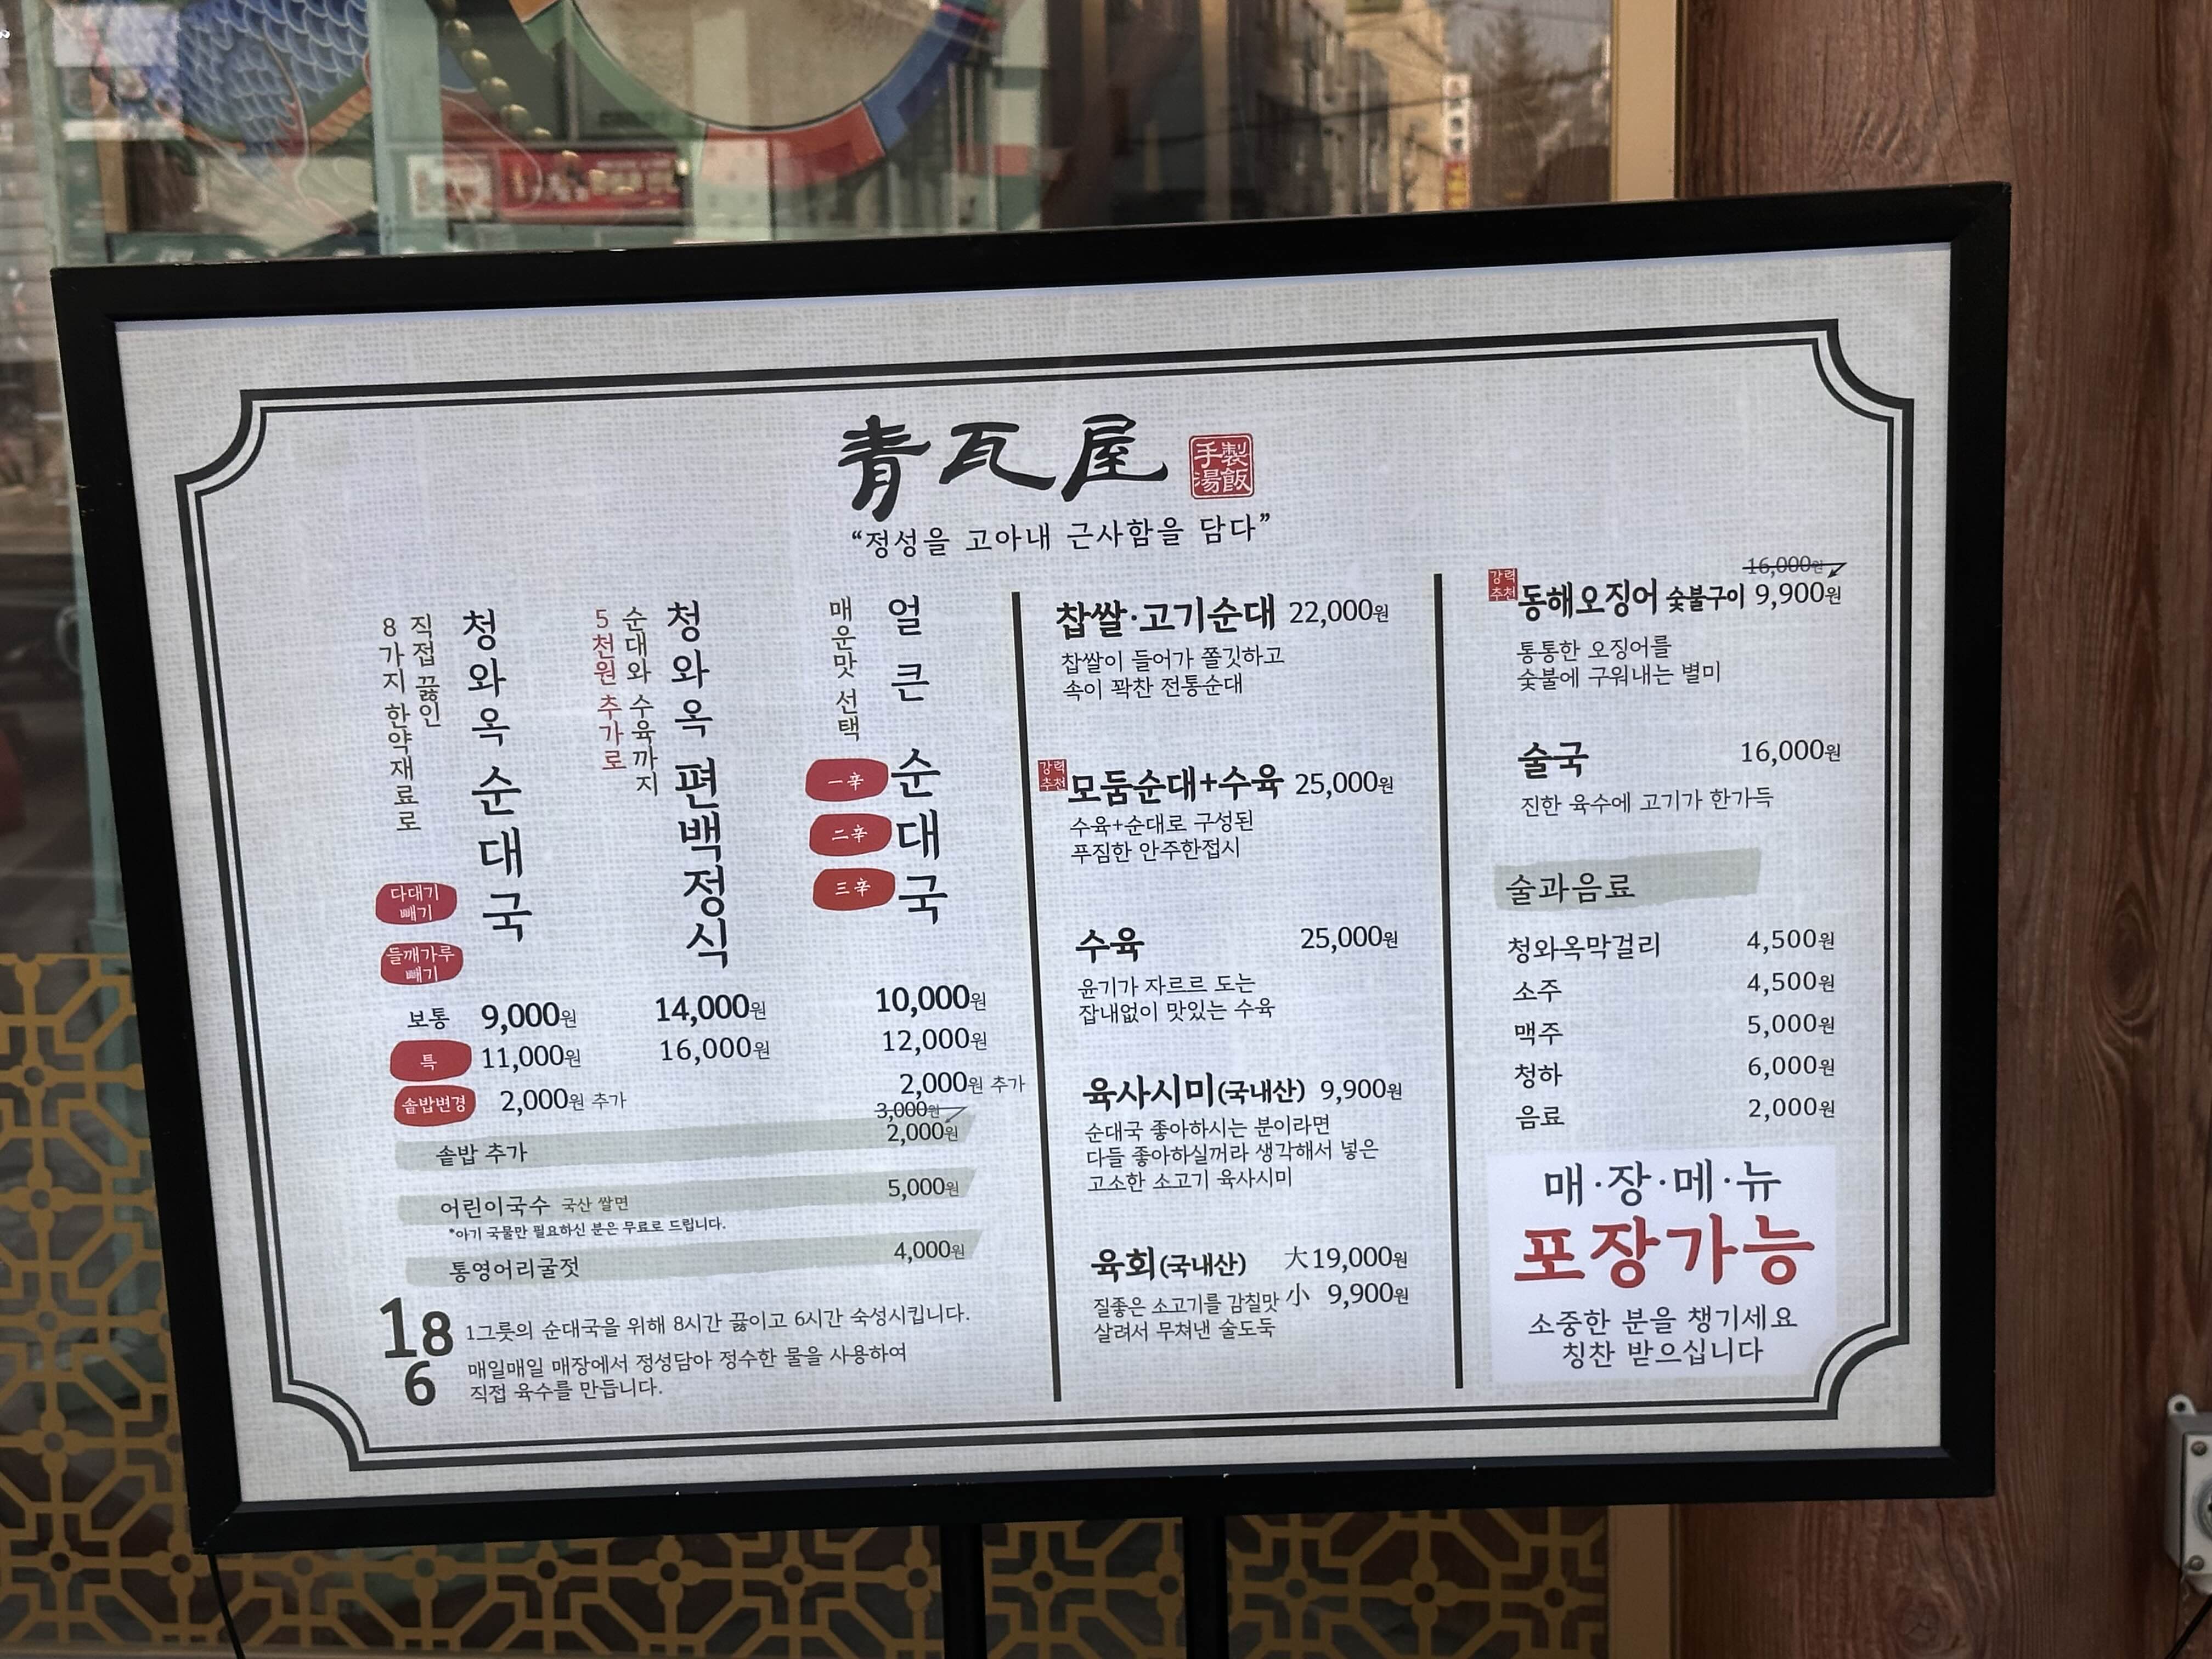 青瓦屋
手製
湯飯
“정성을 고아내 근사함을 담다”
청와옥 순대국
직접 끓인
8가지 한약재료로
다대기
빼기
들깨가루
빼기
청와옥 편백정식
순대와 수육까지
5천원 추가로
얼큰 순대국
매운맛 선택
一辛
二辛
三辛
보통 9,000원 14,000원 10,000원
특 11,000원 16,000원 12,000원
솥밥변경 2,000원 추가 2,000원 추가
3,000원
솥밥 추가 2,000원
어린이국수 국산 쌀면 5,000원
*아기 국물만 필요하신 분은 무료로 드립니다.
통영어리굴젓 4,000원
18
6
1그릇의 순대국을 위해 8시간 끓이고 6시간 숙성시킵니다.
매일매일 매장에서 정성담아 정수한 물을 사용하여
직접 육수를 만듭니다.
찹쌀·고기순대 22,000원
찹쌀이 들어가 쫄깃하고
속이 꽉찬 전통순대
강력
추천
모둠순대+수육 25,000원
수육+순대로 구성된
푸짐한 안주한접시
수육 25,000원
윤기가 자르르 도는
잡내없이 맛있는 수육
육사시미(국내산) 9,900원
순대국 좋아하시는 분이라면
다들 좋아하실꺼라 생각해서 넣은
고소한 소고기 육사시미
육회(국내산) 大 19,000원
小 9,900원
질좋은 소고기를 감칠맛
살려서 무쳐낸 술도둑
16,000원
강력
추천
동해오징어 숯불구이 9,900원
통통한 오징어를
숯불에 구워내는 별미
술국 16,000원
진한 육수에 고기가 한가득
술과음료
청와옥막걸리 4,500원
소주 4,500원
맥주 5,000원
청하 6,000원
음료 2,000원
매·장·메·뉴
포장가능
소중한 분을 챙기세요
칭찬 받으십니다